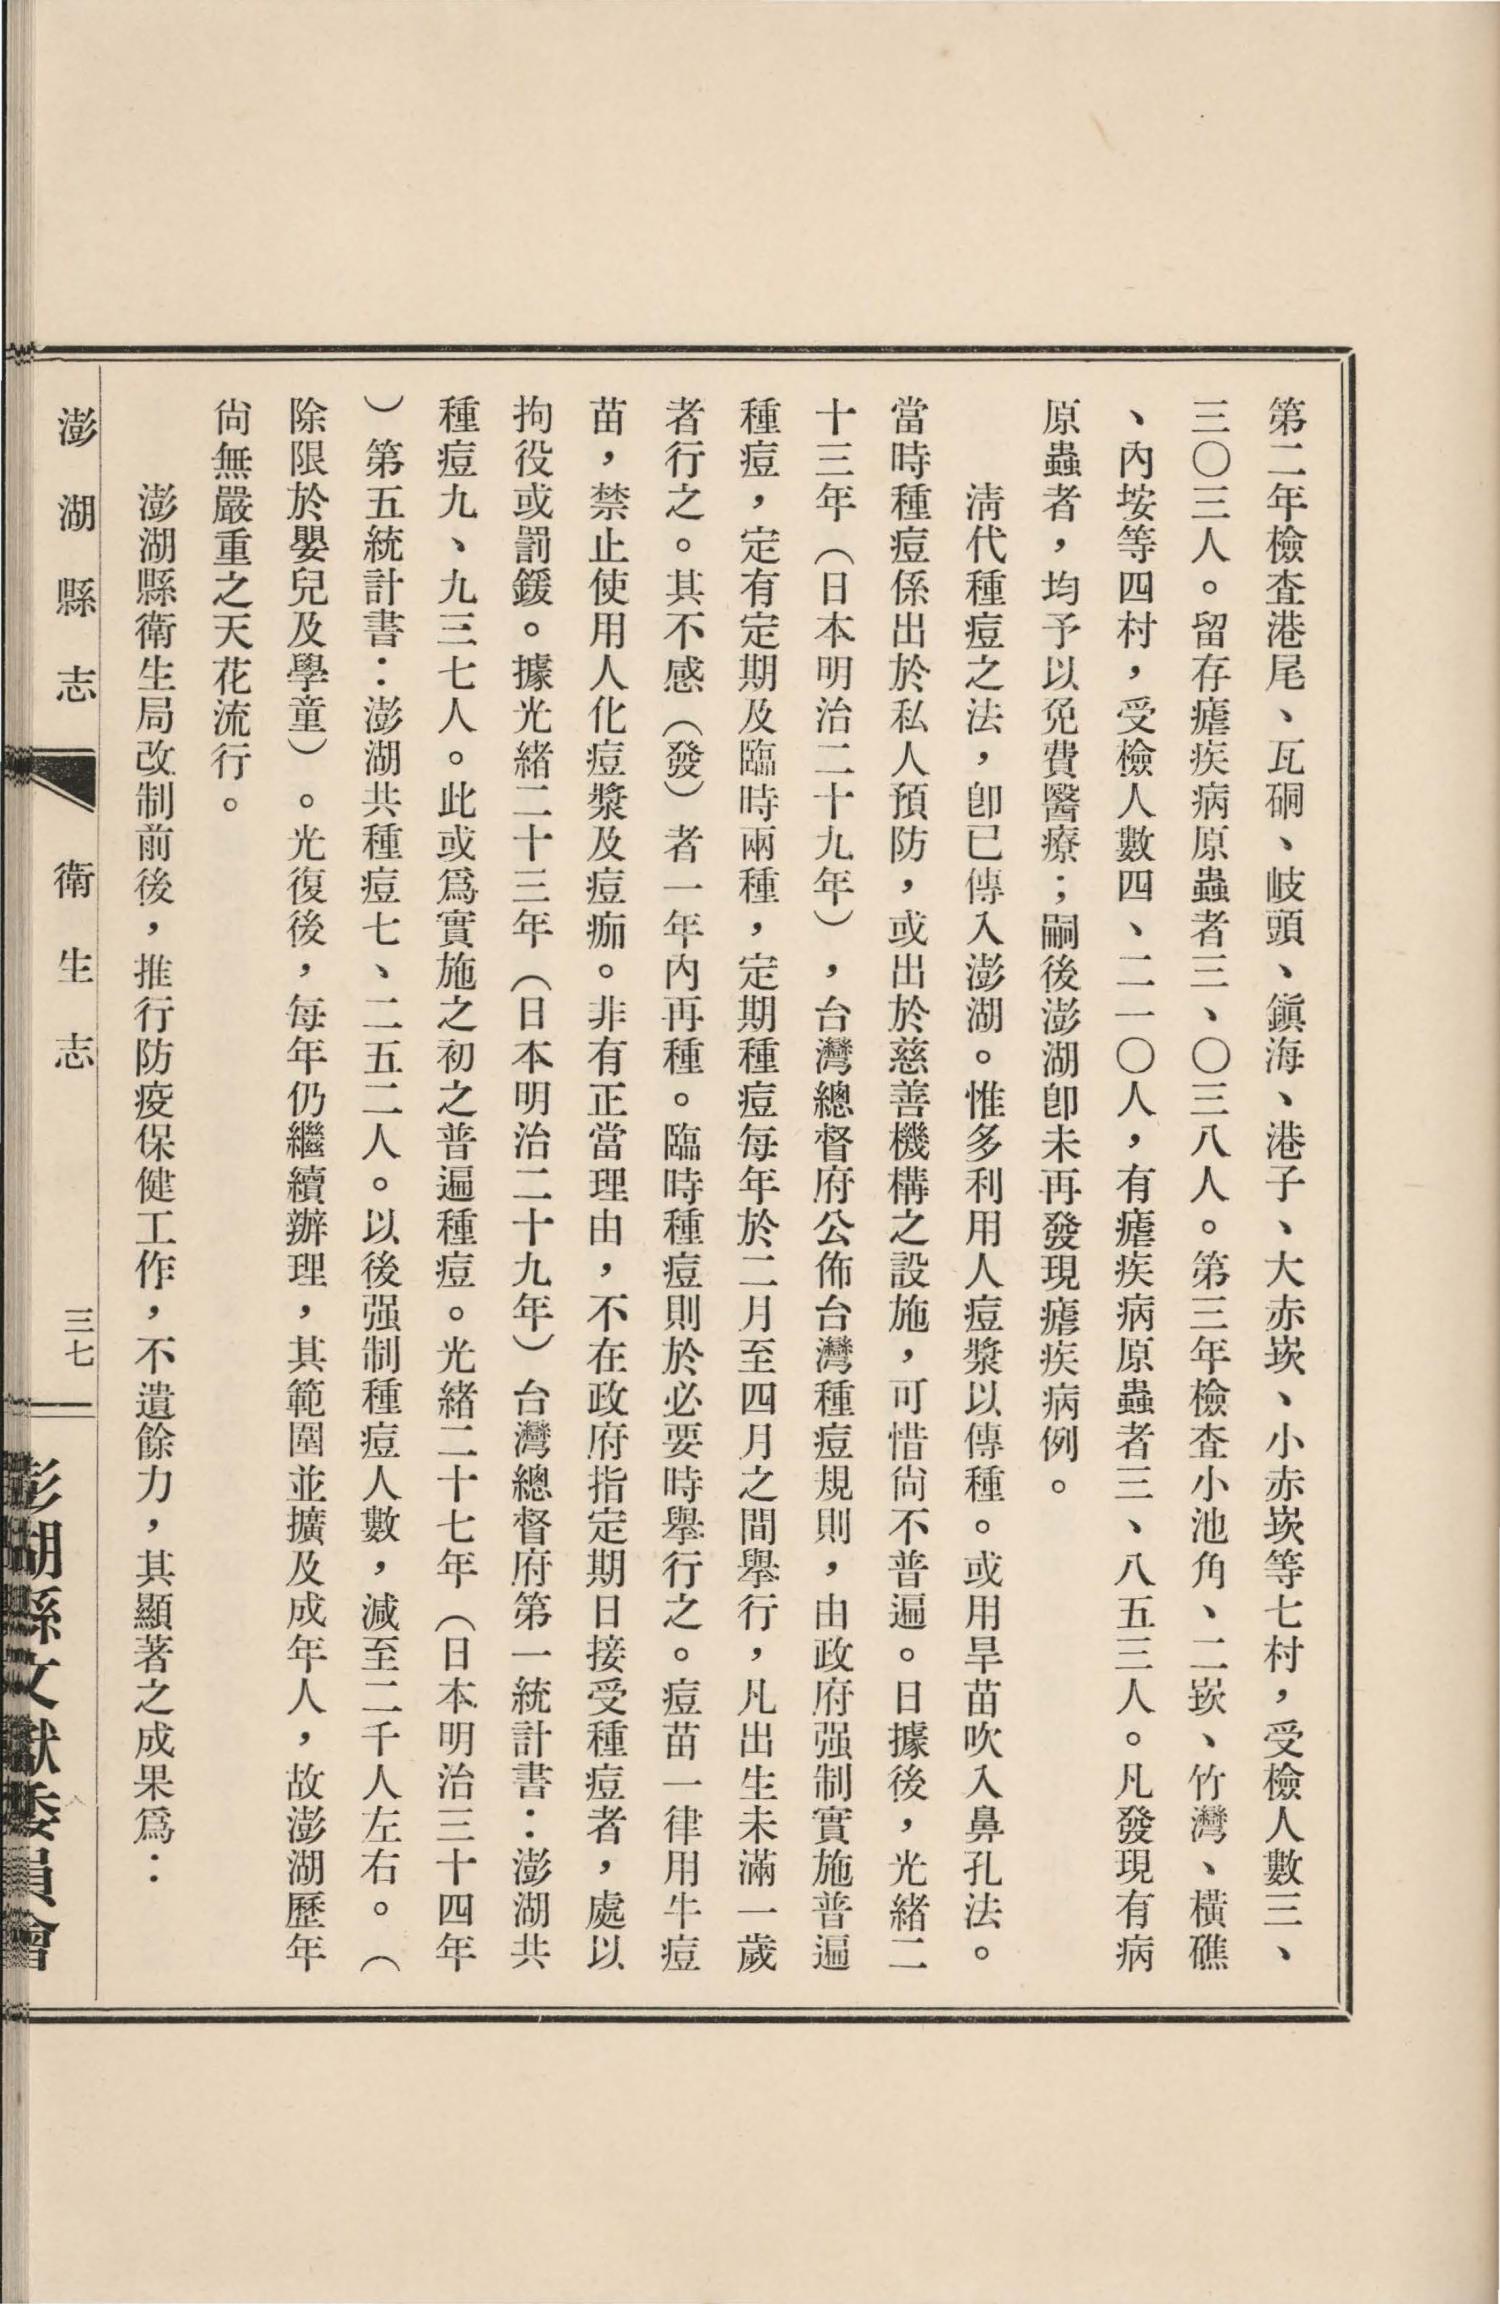 第二年檢查港尾、瓦硐、岐頭、鎭海、港子、大赤崁、小赤崁等七村，受檢人數三、
三〇三人。留存瘧疾病原蟲者三、〇三八人。第三年檢查小池角、二崁、竹灣、橫礁
、內垵等四村，受檢人數四、二一〇人，有瘧疾病原蟲者三、八五三人。凡發現有病
原蟲者，均予以免費醫療；嗣後澎湖卽未再發現瘧疾病例。
淸代種痘之法，卽已傳入澎湖。惟多利用人痘漿以傳種。或用旱苗吹入鼻孔法。
當時種痘係出於私人預防，或出於慈善機構之設施，可惜尙不普遍。日據後，光緒二
十三年（日本明治二十九年），台灣總督府公佈台灣種痘規則，由政府强制實施普遍
種痘，定有定期及臨時兩種，定期種痘每年於二月至四月之間舉行，凡出生未滿一歲
者行之。其不感（發）者一年內再種。臨時種痘則於必要時舉行之。痘苗一律用牛痘
苗，禁止使用人化痘漿及痘痂。非有正當理由，不在政府指定期日接受種痘者，處以
拘役或罰鍰。據光緒二十三年（日本明治二十九年）台灣總督府第一統計書：澎湖共
種痘九、九三七人。此或爲實施之初之普遍種痘。光緒二十七年（日本明治三十四年
）第五統計書：澎湖共種痘七、二五二人。以後强制種痘人數，減至二千人左右。（
除限於嬰兒及學童）。光復後，每年仍繼續辦理，其範圍並擴及成年人，故澎湖歷年
尙無嚴重之天花流行。
澎湖縣衛生局改制前後，推行防疫保健工作，不遺餘力，其顯著之成果爲：
澎湖縣志 衛生志 三七
澎湖縣文獻委員會